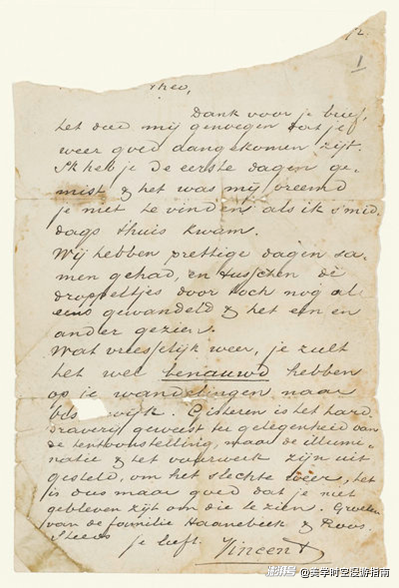 72.
1
Theo,
Dank voor je brief,
het deed mij genoegen dat je
weer goed aangekomen zijt.
Ik heb je de eerste dagen ge-
mist & het was mij vreemd
je niet te vinden als ik s'mid-
dags thuis kwam.
Wij hebben prettige dagen sa-
men gehad, en tusschen de
droppeltjes door toch nog al
eens gewandeld & het een en
ander gezien.
Wat vreesselijk weer, je zult
het wel benauwd hebben
op je wandelingen naar
wijk. Gisteren is het hard-
draverij geweest ter gelegenheid van
de tentoonstelling, maar de illumi-
natie & het vuurwerk zijn uit
gesteld, om het slechte weer, het
is dus maar goed dat je niet
gebleven zijt om die te zien. Groeten
van de familie Haanebeek & Roos.
Steeds
je liefh. Vincent
澎湃号
@美学时空漫游指南